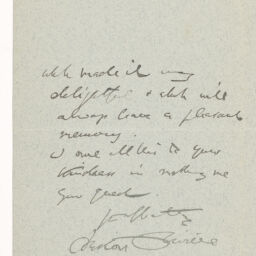 which made it very
delightful & which will
always leave a pleasant
memory.
I owe all this to your
kindness in making me
your guest.